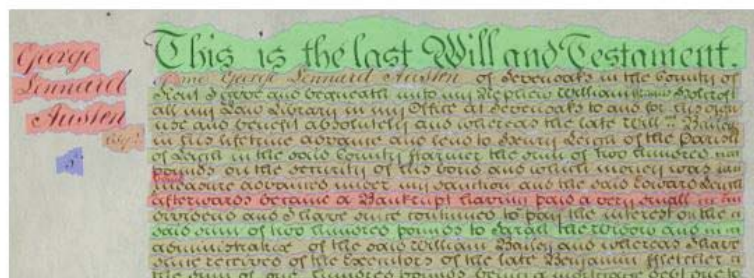 George
Lennard
Austen
This is the last Will and Testament.
of me George Lennard Austen of Sevenoaks in the County of
Kent I give and bequeath unto my Nephew William
all my Law Library in my Office at Sevenoaks to and for his own
use and benefit absolutely and whereas the late Will.m Bailey
in his lifetime advance and lend to Henry Leigh of the Parish
of Leigh in the said County Farmer the sum of two hundred
pounds on the security of his bond and which money was
advanced under my sanction and the said Edward Leigh
afterwards became a Bankrupt having paid a very small
dividend and I have since continued to pay the interest on the
said sum of two hundred pounds to Sarah the widow and
administratrix of the said William Bailey and whereas I have
since received of the Executors of the late Benjamin
the sum of one hundred pounds being